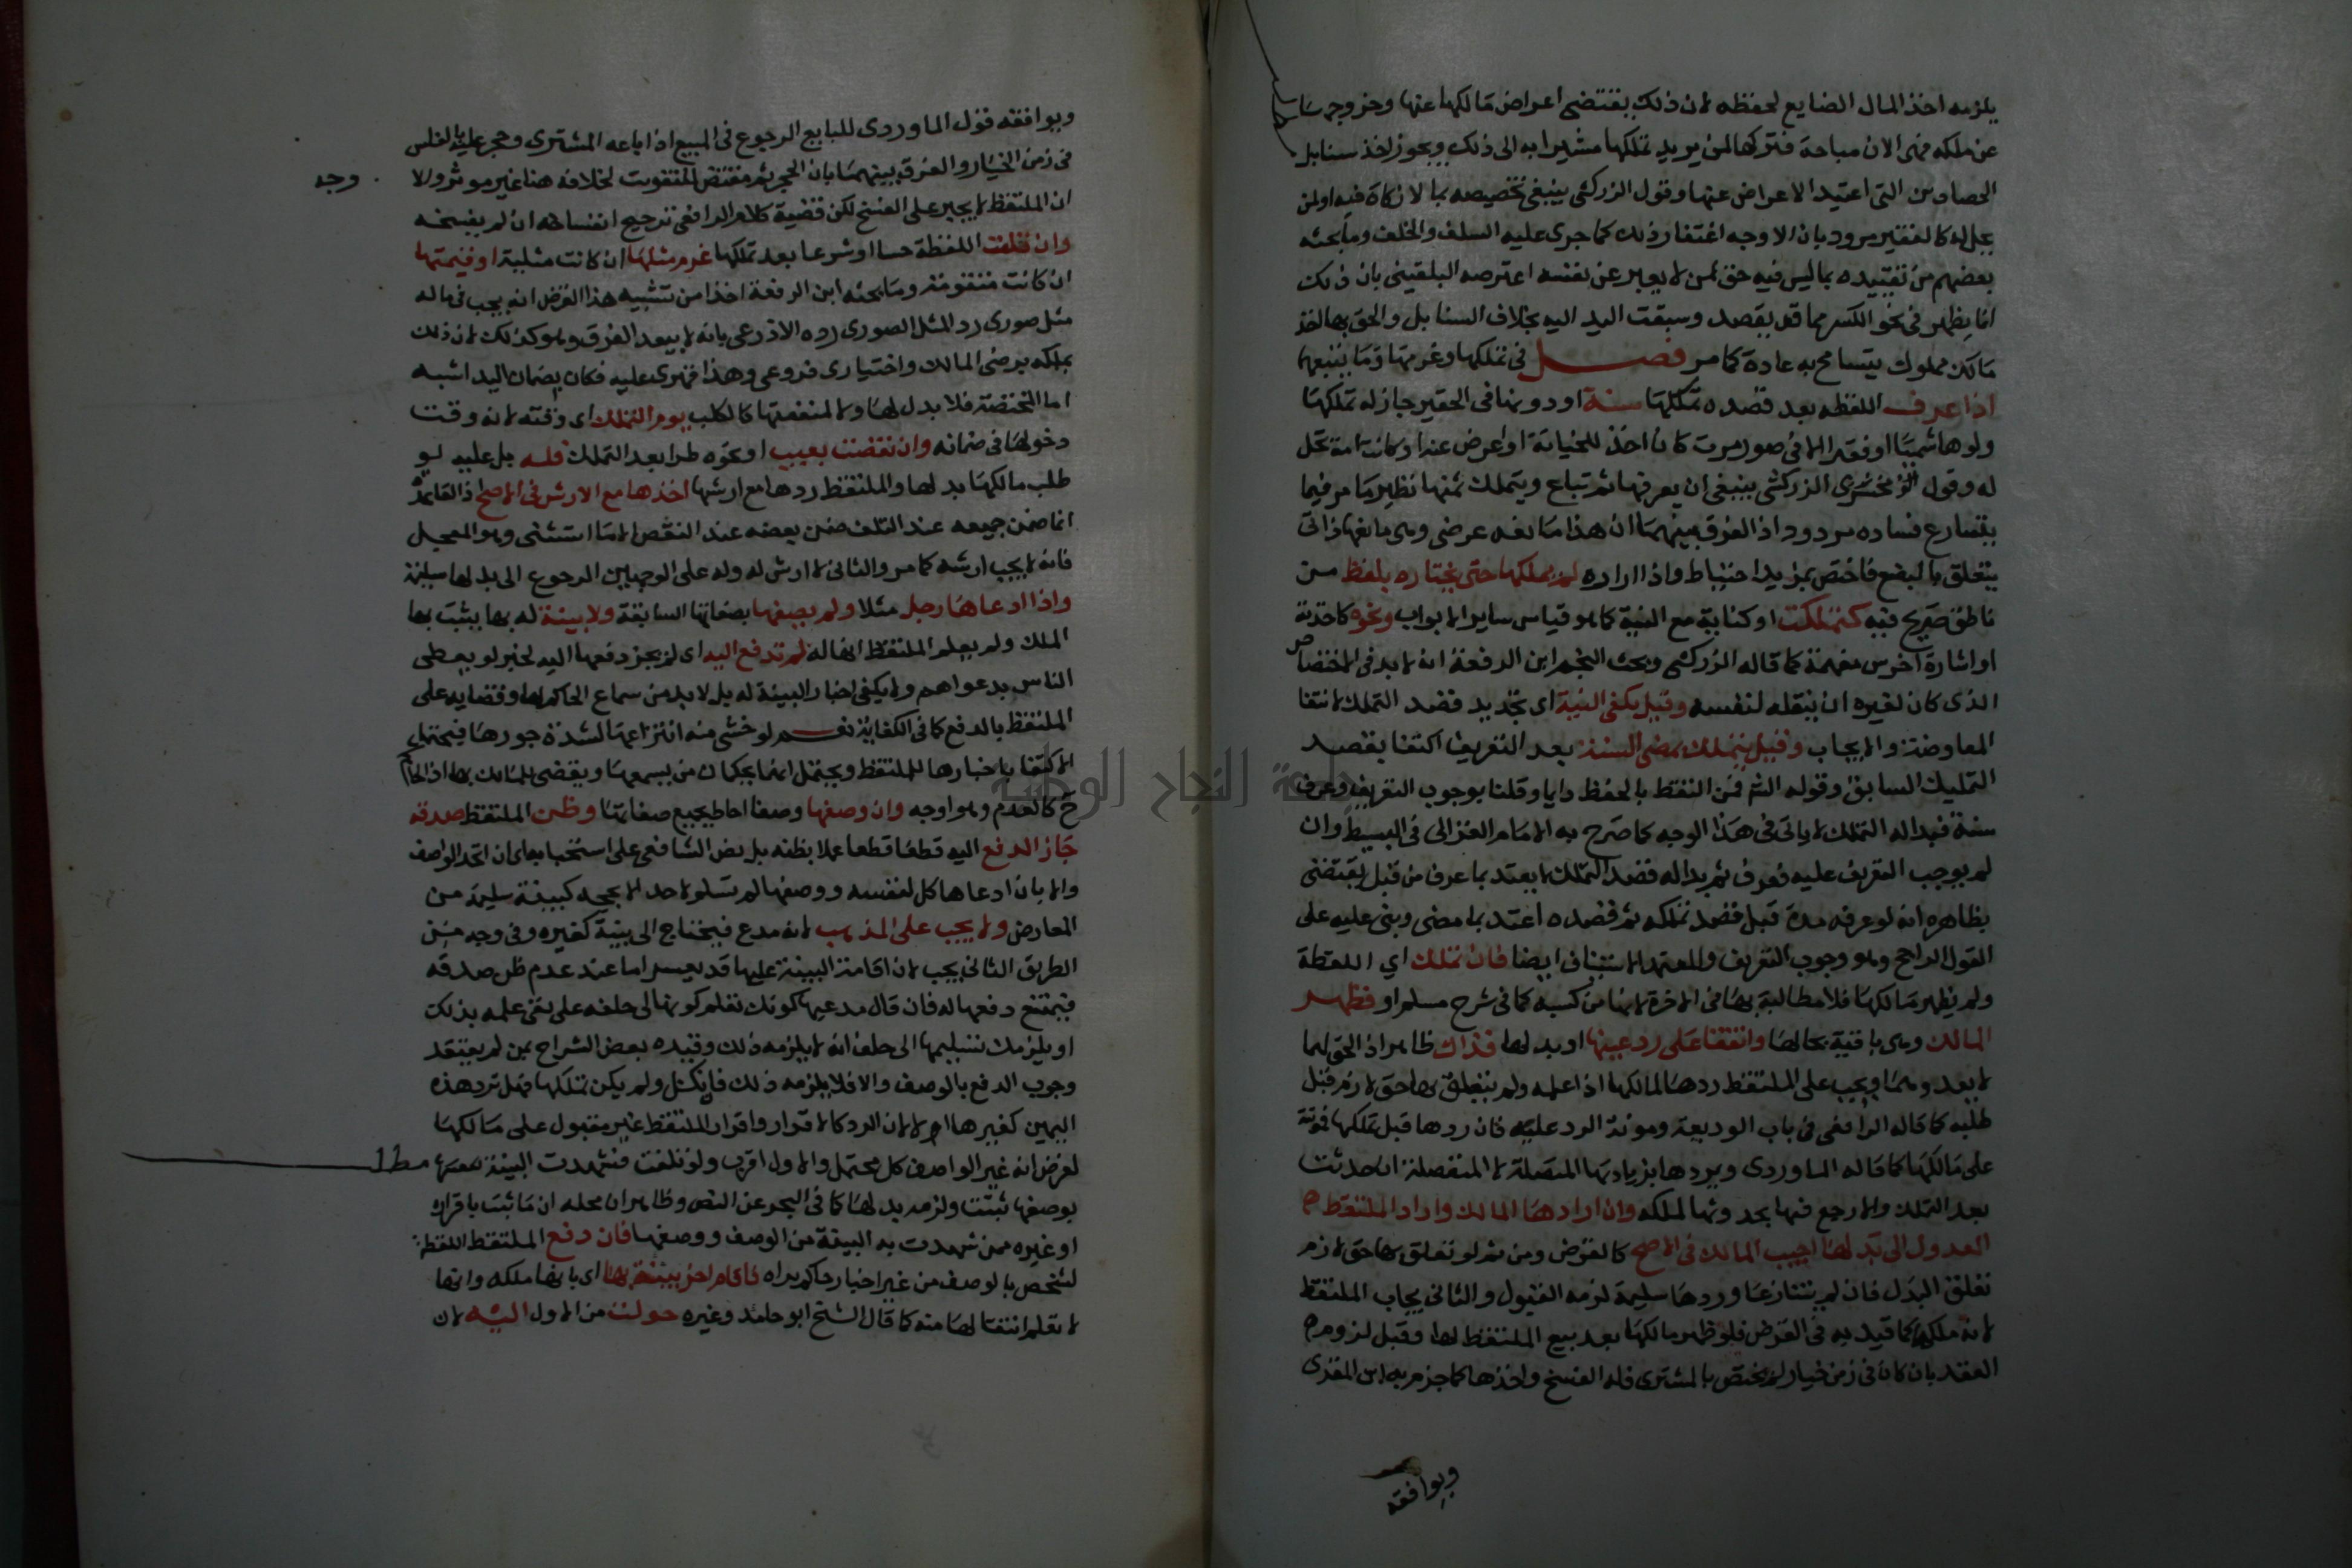 يلزمه اخذ المال الضايع لحفظه لان ذلك يقتضى اعراض مالكها عنها وخروجها
عن ملكه فهى الان مباحة فتركها لمن يريد تملكها مشيرا به الى ذلك ويجوز اخذ سنابل
الحصادين التى اعتيد الاعراض عنها وقول الزركشى ينبغى تخصيصه بما لا زكاة فيه او لمن
يحل له كالفقير مردود بان الاوجه اغتفار ذلك كما جرى عليه السلف والخلف وما بحثه
بعضهم من تقييده بما ليس فيه حق لمن لا يعبر عن نفسه اعترضه البلقينى بان ذلك
انما يظهر فى نحو الكسر مما قد يقصد وسبقت اليد اليه بخلاف السنابل والحق بها اخذ
ماكن مملوك يتسامح به عادة كما مر فصل فى تملكها وغرمها وما يتبعها
اذا عرف اللقطه بعد قصده تملكها سنة او دونها فى الحقير جاز له تملكها
ولو هاشميا او فقيرا الا فى صور مرت كان اخذ للخيانة او اعرض عنه او كانت امة تحل
له وقول الزركشى ينبغى ان يعرفها ثم تباع ويتملك ثمنها نظير ما مر فيما
يتسارع فساده مردود اذ الفرق بينهما ان هذا مانعه عرضى وهى مانعها ذاتى
يتعلق بالبضع فاختص بمزيد احتياط واذا اراده لم يملكها حتى يختاره بلفظ من
ناطق صريح فيه كتملكت او كناية مع النية كما هو قياس ساير الابواب ونحوه كاخذته
او اشارة اخرس مفهمة كما قاله الزركشى وبحث النجم ابن الرفعة انه لا بد فى الاختصاص
الذى كان لغيره ان ينقله لنفسه وقيل يكفى النية اى تجديد قصد التملك لانتفا
المعاوضة والايجاب وقيل يتملك بمضى السنة بعد التعريف اكتفا بقصد
التمليك السابق وقوله الثم فمن التقط بالحفظ دايما وقلنا بوجوب التعريف وعرف
سنة فبدا له التملك لا ياتى فى هذا الوجه كما صرح به الامام الغزالى فى البسيط وان
لم يوجب التعريف عليه فعرف ثم بدا له قصد التملك لا يعتد بما عرف من قبل يقتضى
بظاهره انه لو عرفه مدة قبل قصد تملكه ثم قصده اعتد بما مضى وبنى عليه على
القول الراجح وهو وجوب التعريف والمعتمد الاستيناف ايضا فان تملك اي اللقطة
ولم يظهر مالكها فلا مطالبة بها فى الاخرة لانها من كسبه كما فى شرح مسلم او فظهر
المالك وهى باقية بحالها واتفقا على رد عينها او بدلها فذاك ظاهر اذ الحق لهما
لا يعدوهما ويجب على الملتقط ردها لمالكها اذا علمه ولم يتعلق بها حق لازم قبل
طلبه كما قاله الرافعى فى باب الوديعة ومونة الرد عليه فان ردها قبل تملكها فمونة
على مالكها كما قاله الماوردى ويردها بزيادتها المتصلة لا المنفصلة ان حدثت
بعد التملك والا رجع فيها بحدوثها لملكه وان ارادها المالك واراد الملتقط
العدول الى بدلها اجيب المالك فى الاصح كالقرض ومن ثم لو تعلق بها حق لازم
تعلق البدل فان لم يتنازعا وردها سليمة لزمه القبول والثانى يجاب الملتقط
لانه ملكها كما قيد به فى القرض فلو ظهر مالكها بعد بيع الملتقط لها وقبل لزوم
العقد بان كان فى زمن خيار لم يختص بالمشترى فله الفسخ واخذها كما جزم به ابن المقرى
ويوافقه
ويوافقه قول الماوردى للبايع الرجوع فى المبيع اذا باعه المشترى وحجر عليه بالفلس
فى زمن الخيار والفرق بينهما بان الحجر ثم مقتض للتفويت بخلافه هنا غير موثر والا
وجه
ان الملتقط لا يجبر على الفسخ لكن قضية كلام الرافعى ترجيح انفساخه ان لم يفسخه
وان تلفت اللقطة حسا او شرعا بعد تملكها غرم مثلها ان كانت مثلية او قيمتها
ان كانت متقومة وما بحثه ابن الرفعة اخذا من تشبيه هذا القرض انه يجب فيما له
مثل صورى رد المثل الصورى رده الاذرعى بانه لا يبعد الفرق وهو كذلك لان ذلك
يملكه برضى المالك واختيارى فروعى وهذا قهرى عليه فكان بضمان اليد اشبه
اما المختصة فلا بدل لها ولا لمنفعتها كالكلب يوم التملك اى وقته لانه وقت
دخولها فى ضمانه وان نقصت بعيب او نحوه طرا بعد التملك فله بل عليه لو
طلب مالكها بدلها والملتقط ردها مع ارشها اخذها مع الارش فى الاصح اذ القاعدة
انما ضمن جميعه عند التلف ضمن بعضه عند النقص الا ما استثنى وهو المعجل
فانه لا يجب ارشه كما مر والثانى لا ارش له وله على الوجهين الرجوع الى بدلها سليمة
واذا ادعاها رجل مثلا ولم يصفها بصفاتها السابقة ولا بينة له بها يثبت بها
الملك ولم يعلم الملتقط انها له لم تدفع اليه اى لم يجز دفعها اليه لخبر لو يعطى
الناس بدعواهم ولا يكفى اخبار البينة له بل لا بد من سماع الحاكم لها وقضايه على
الملتقط بالدفع كما فى الكفاية نعم لو خشى منه انتزاعها لشدة جوره فيحتمل
الاكتفا باخبارها للملتقط ويحتمل انهما يحكمان من يسمعها ويقضى للمالك بها اذ الحاكم
ح كالعدم وهو اوجه وان وصفها وصفا احاط بجميع صفاتها وظن الملتقط صدقه
جاز الدفع اليه قطعا عملا بظنه بل نص الشافعى على استحبابه اى ان اتحد الواصف
والا بان ادعاها كل لنفسه ووصفها لم تسلم لاحد الا بحجه كبينة سليمة من
المعارض ولا يجب على المذهب لانه مدع فيحتاج الى بينة كغيره وفى وجه من
الطريق الثانى يجب لان اقامة البينة عليها قد يعسر اما عند عدم ظن صدقه
فيمتنع دفعها له فان قال مدعيها كونك تعلم كونها لى حلف على نفى علمه بذلك
او يلزمك تسليمها الى حلف انه لا يلزمه ذلك وقيده بعض الشراح بمن لم يعتقد
وجوب الدفع بالوصف والا فلا يلزمه ذلك فان نكل ولم يكن تملكها فهل ترد هذه
اليمين كغيرها ام لا لان الرد كالاقرار واقرار الملتقط غير مقبول على مالكها
لفرض انه غير الواصف كل محتمل والاول اقرب ولو تلفت فشهدت البينة
بوصفها ثبتت ولزمه بدلها كما فى البحر عن النص وظاهر ان محله ان ما ثبت باقراره
او غيره ممن شهدت به البينة من الوصف ووصفها فان دفع الملتقط اللقطة
لشخص بالوصف من غير اخبار حاكم يراه فاقام اخر بينة بها اى بانها ملكه وانها
لا تعلم انتقالها منه كما قال الشيخ ابو حامد وغيره حولت من الاول اليه لان
جامعة النجاح الوطنية